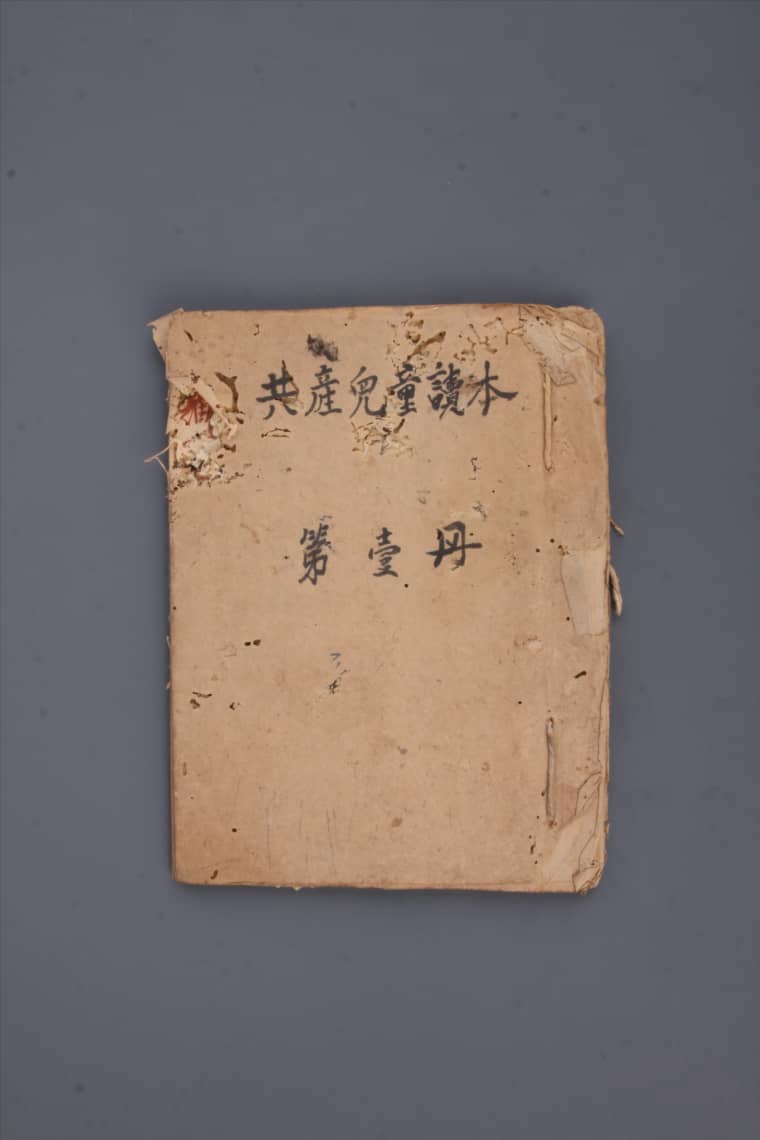 共產兒童讀本
第壹册